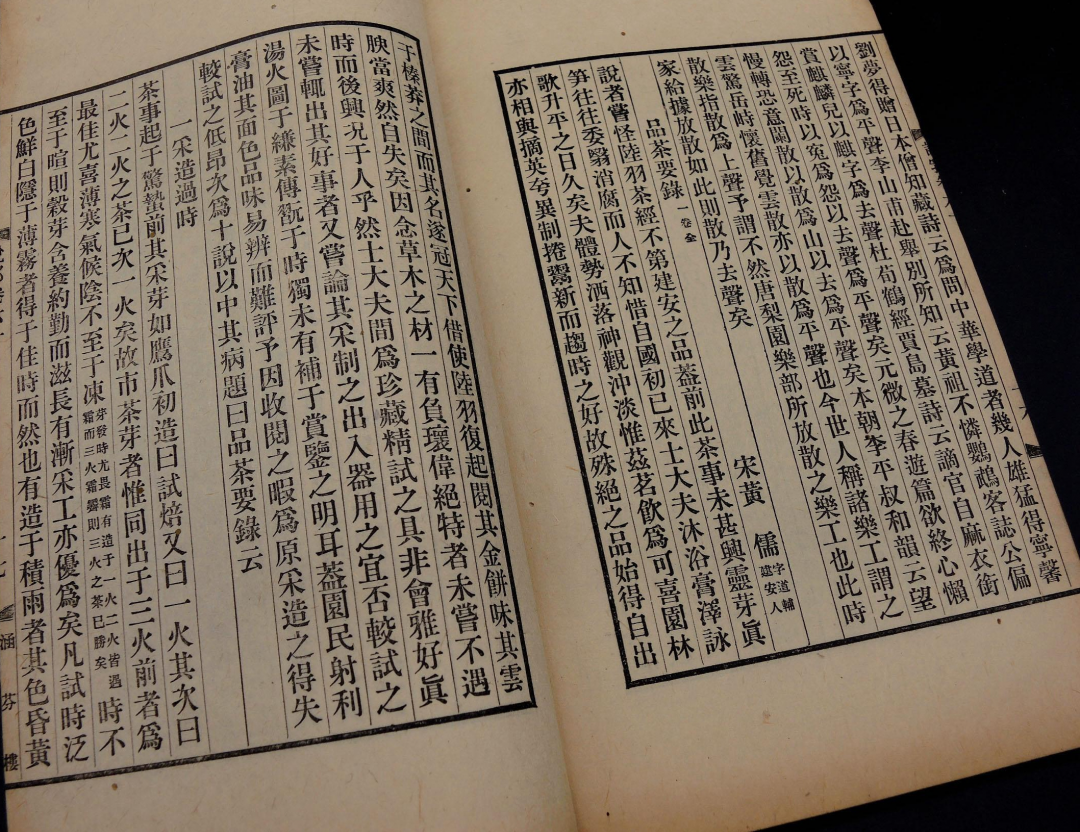 劉夢得贈日本僧知藏詩云爲問中華學道者幾人雄猛得寧馨
以寧字爲平聲李山甫赴舉別所知云黃祖不憐鸚鵡客誌公偏
賞麒麟兒以麒字爲去聲杜荀鶴經賈島墓詩云謫官自麻衣銜
怨至死時以寃爲怨以去聲爲平聲矣元微之春遊篇欲終心懶
慢轉恐意闌散以散爲山以去爲平聲矣本朝李平叔和韻云望
雲驚岳峙懷舊覺雲散亦以散爲平聲也今世人稱諸樂工謂之
散樂指散爲上聲予謂不然唐梨園樂部所放散之樂工也此時
家給據放散如此則散乃去聲矣
品茶要錄 卷全
宋黃 儒 字道輔建安人
說者嘗怪陸羽茶經不第建安之品蓋前此茶事未甚興靈芽眞
笋往往委翳消腐而人不知惜自國初已來士大夫沐浴膏澤詠
歌升平之日久矣夫體勢洒落神觀沖淡惟茲茗飮爲可喜園林
亦相與摘英夸異制捲鬻新而趨時之好故殊絕之品始得自出
于榛莽之間而其名遂冠天下借使陸羽復起閱其金餅味其雲
腴當爽然自失矣因念草木之材一有負瓌偉絕特者未嘗不遇
時而後興况于人乎然士大夫間爲珍藏精試之具非會雅好眞
未嘗輒出其好事者又嘗論其采制之出入器用之宜否較試之
湯火圖于縑素傳翫于時獨未有補于賞鑒之明耳蓋園民射利
膏油其面色品味易辨而難評予因收閱之暇爲原采造之得失
較試之低昂次爲十說以中其病題曰品茶要錄云
一采造過時
茶事起于驚蟄前其采芽如鷹爪初造曰試焙又曰一火其次曰
二火二火之茶已次一火矣故市茶芽者惟同出于三火前者爲
最佳尤喜薄寒氣候陰不至于凍 芽發時尤畏霜有造于一火二火皆遇霜而三火霜霽則三火之茶已勝矣 時不
至于暄則穀芽含養約勤而滋長有漸采工亦優爲矣凡試時泛
色鮮白隱于薄霧者得于佳時而然也有造于積雨者其色昏黃
十七
涵芬樓